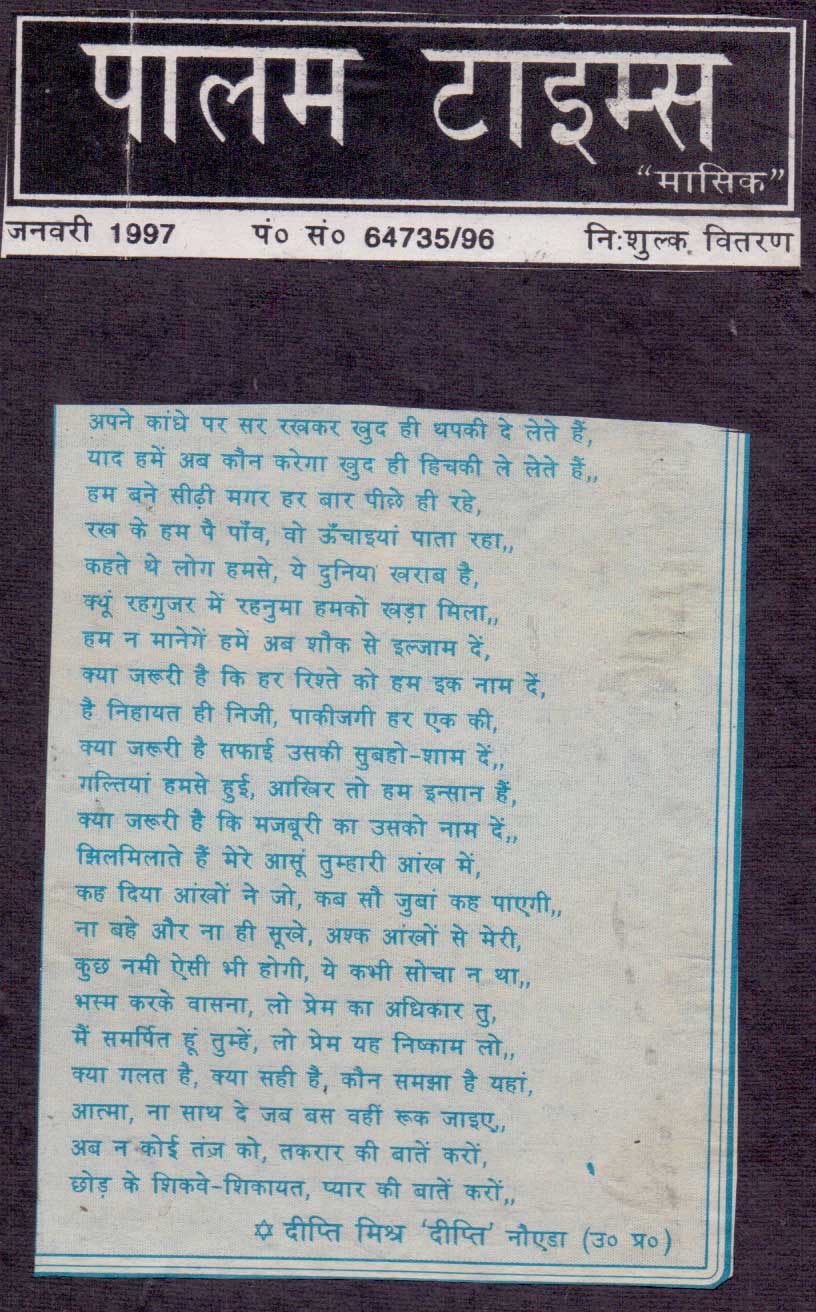 पालम टाइम्स
“मासिक”
जनवरी 1997 पं० सं० 64735/96 नि:शुल्क वितरण
अपने कांधे पर सर रखकर खुद ही थपकी दे लेते हैं,
याद हमें अब कौन करेगा खुद ही हिचकी ले लेते हैं,,
हम बने सीढ़ी मगर हर बार पीछे ही रहे,
रख के हम पै पाँव, वो ऊँचाइयां पाता रहा,,
कहते थे लोग हमसे, ये दुनिया खराब है,
क्यूं रहगुजर में रहनुमा हमको खड़ा मिला,,
हम न मानेगें हमें अब शौक से इल्जाम दें,
क्या जरूरी है कि हर रिश्ते को हम इक नाम दें,
है निहायत ही निजी, पाकीजगी हर एक की,
क्या जरूरी है सफाई उसकी सुबहो-शाम दें,,
गल्तियां हमसे हुई, आखिर तो हम इन्सान हैं,
क्या जरूरी है कि मजबूरी का उसको नाम दें,,
झिलमिलाते हैं मेरे आसूं तुम्हारी आंख में,
कह दिया आंखों ने जो, कब सौ जुबां कह पाएगी,,
ना बहे और ना ही सूखे, अश्क आंखों से मेरी,
कुछ नमी ऐसी भी होगी, ये कभी सोचा न था,,
भस्म करके वासना, लो प्रेम का अधिकार तु,
मैं समर्पित हूं तुम्हें, लो प्रेम यह निष्काम लो,,
क्या गलत है, क्या सही है, कौन समझा है यहां,
आत्मा, ना साथ दे जब बस वहीं रूक जाइए,,
अब न कोई तंज़ को, तकरार की बातें करों,
छोड़ के शिकवे-शिकायत, प्यार की बातें करों,,
✡ दीप्ति मिश्र ‘दीप्ति’ नौएडा (उ० प्र०)